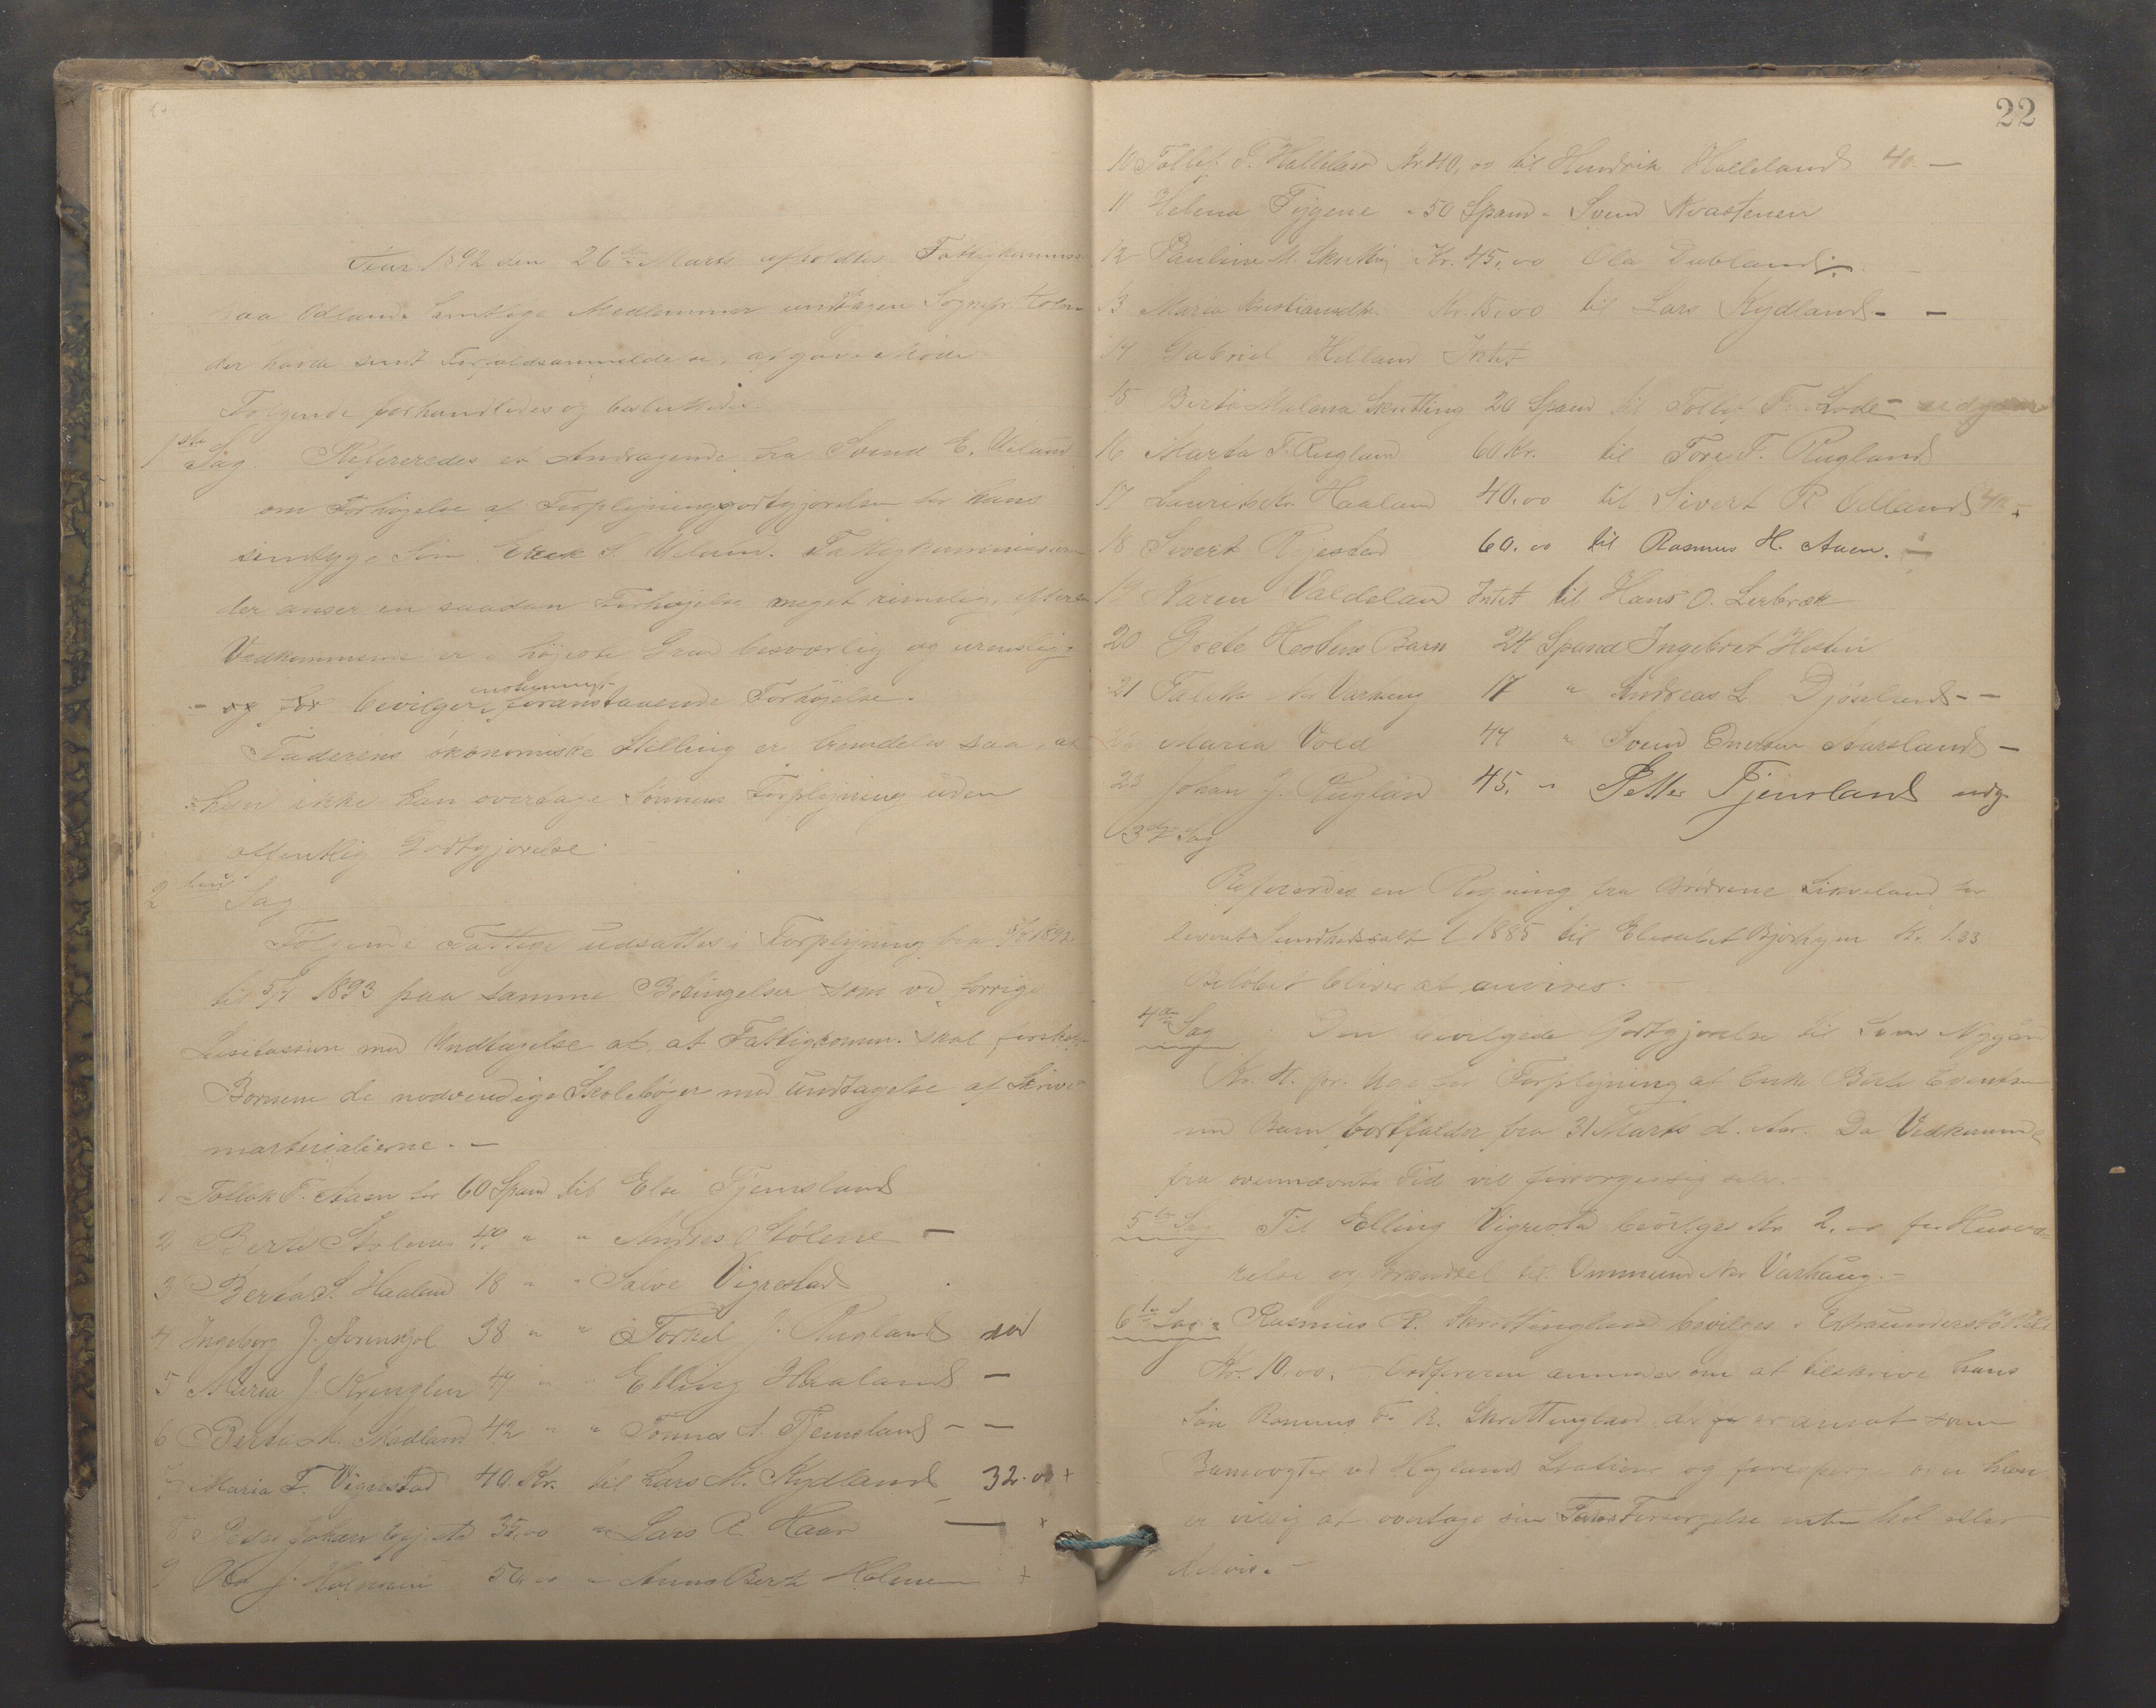 Aar 1892 den 26de Marts afholdtes Fattigkommiss.
paa Odland. Samtlige Medlemmer undtagen Sognepr. Holm
der havde sendt Forfaldsanmeldelse, afgave Møde
Følgende forhandledes og besluttedes
1ste Sag. Refereredes et Andragende fra Svend E. Ueland
om Forhøjelse af Forplejningsgodtgjørelsen for hans
sindsyge Søn Erek S. Ueland. Fattigkommissionen
der anser en saadan Forhøjelse meget rimelig, efterso
Vedkommende er i højeste Grad besværlig og urenslig
bevilger enstemmigt foranstaaende Forhøjelse.
Faderens økonomiske Stilling er fremdeles saa, at
han ikke kan overtage Sønnens Forplejning uden
offentlig Godtgjørelse.
2den Sag
Følgende Fattige udsattes i Forplejning fra 5/4 1892
til 5/4 1893 paa samme Betingelser som ved forrige
Lisitassion med Undtagelse af at Fattigkomm. skal
Børnene de nødvendige Skolebøger med undtagelse af Skrive
materialierne. -
1 Tollak T. Aasen for 60 Spand til Else Tjemsland
2 Berte Stolene 40 " " Andreas Stølene -
3 Berta S. Haaland 18 " " Salve Vigrestad
4 Ingeborg J. 38 " " Torkel J. Rugland
5 Maria J. 49 " " Elling Haaland -
6 Berta M. Madland 42 " " Tønnes A. Tjemsland - -
7 Maria T. Vigrestad 40. Kr. til Lars M. Kydland 32.00 +
8 Peder Johan 35,00 " Lars R. Haar — +
9 J. Holmen 50, " " Anna Berta Holmen +
22
10 Tollef T. Halleland Kr. 40,00 til Hendrik Halleland 40. -
11 Helena " 50 Spand " Svend Kvastenen
12 Pauline M. Skretting Kr. 45,00 Ola Dubland. -
13 Maria Kristiansdtr. Kr. 15,00 til Lars Kydland - -
14 Gabriel Helland Intet
15 Berta Malena Skretting 20 Spand til Tollef T. Lode -
16 Marta T. Rugland 60 Kr. til Tore T. Rugland
17 Lauritz Kr. Haaland 40.00 til Sivert R Odland 40. +
18 Sivert 60.00 til Rasmus H. Auen. -
19 Karen Valdeland Intet til Hans O. Lerbræk
20 Grete Hestens Barn 24 Spand Ingebret Hesten
21 Nr Varhaug 17 " Andreas L Djøseland - -
22 Maria Vold 44 " Svend Enersen Aarsland -
23 Johan J. Rugland 45. " Petter Tjemsland
3die Sag
Refereredes en Regning fra Brødrene for
leveret i 1885 til Elisabet Kr. 1.33
Beløbet bliver at anvises.
4de Sag Den bevilgede Godtgjørelse til Sven Nygaard
Kr. 4. pr. Uge for Forplejning af Enke Berte
med Barn, bortfalder fra 31 Marts d. Aar. Da Vedkommende
fra ovennævnte Tid vil forsørge sig selv.
5te Sag Til Elling Vigrestad bevilges Kr 2. for
relse og Brændsel til Ommund Nr Varhaug. -
6te Sag. Rasmus R. Skrettingland bevilges i Extraunderstøttelse
Kr. 10.00. Ordføreren anmodes om at tilskrive hans
Søn Rasmus R. Skrettingland der er ansat som
Banevogter ved Høgland Station og forespørge om han
er villig at overtage sin Fars Forsørgelse enten hel eller
delvis.